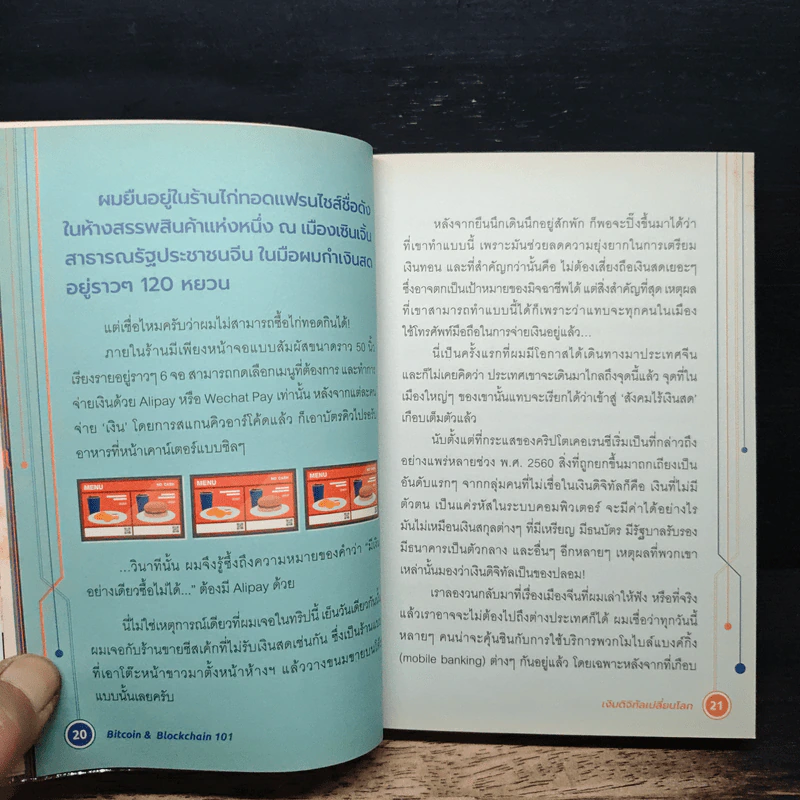 ผมยืนอยู่ในร้านไก่ทอดแฟรนไชส์ชื่อดัง
ในห้างสรรพสินค้าแห่งหนึ่ง ณ เมืองเซินเจิ้น
สาธารณรัฐประชาชนจีน ในมือผมกำเงินสด
อยู่ราวๆ 120 หยวน
แต่เชื่อไหมครับว่าผมไม่สามารถซื้อไก่ทอดกินได้!
ภายในร้านมีเพียงหน้าจอแบบสัมผัสขนาดราว 50 นิ้ว
เรียงรายอยู่ราวๆ 6 จอ สามารถกดเลือกเมนูที่ต้องการ และทำการ
จ่ายเงินด้วย Alipay หรือ Wechat Pay เท่านั้น หลังจากแต่ละคน
จ่าย ‘เงิน’ โดยการสแกนคิวอาร์โค้ดแล้ว ก็เอาบัตรคิวไปรอรับ
อาหารที่หน้าเคาน์เตอร์แบบชิลๆ
MENU NO CASH
MENU NO CASH
MENU NO CASH
...วินาทีนั้น ผมจึงรู้ซึ้งถึงความหมายของคำว่า “มีเงิน
อย่างเดียวซื้อไม่ได้...” ต้องมี Alipay ด้วย
นี่ไม่ใช่เหตุการณ์เดียวที่ผมเจอในทริปนี้ เย็นวันเดียวกันนั้น
ผมเจอกับร้านขายชีสเค้กที่ไม่รับเงินสดเช่นกัน ซึ่งเป็นร้าน
ที่เอาโต๊ะหน้าขาวมาตั้งหน้าห้างฯ แล้ววางขนมขายบน
แบบนั้นเลยครับ
20 Bitcoin & Blockchain 101
หลังจากยืนนึกเดินนึกอยู่สักพัก ก็พอจะปิ๊งขึ้นมาได้ว่า
ที่เขาทำแบบนี้ เพราะมันช่วยลดความยุ่งยากในการเตรียม
เงินทอน และที่สำคัญกว่านั้นคือ ไม่ต้องเสี่ยงถือเงินสดเยอะๆ
ซึ่งอาจตกเป็นเป้าหมายของมิจฉาชีพได้ แต่สิ่งสำคัญที่สุด เหตุผล
ที่เขาสามารถทำแบบนี้ได้ก็เพราะว่าแทบจะทุกคนในเมือง
ใช้โทรศัพท์มือถือในการจ่ายเงินอยู่แล้ว...
นี่เป็นครั้งแรกที่ผมมีโอกาสได้เดินทางมาประเทศจีน
และก็ไม่เคยคิดว่า ประเทศเขาจะเดินมาไกลถึงจุดนี้แล้ว จุดที่ใน
เมืองใหญ่ๆ ของเขานั้นแทบจะเรียกได้ว่าเข้าสู่ ‘สังคมไร้เงินสด’
เกือบเต็มตัวแล้ว
นับตั้งแต่ที่กระแสของคริปโตเคอเรนซีเริ่มเป็นที่กล่าวถึง
อย่างแพร่หลายช่วง พ.ศ. 2560 สิ่งที่ถูกยกขึ้นมาถกเถียงเป็น
อันดับแรกๆ จากกลุ่มคนที่ไม่เชื่อในเงินดิจิทัลก็คือ เงินที่ไม่มี
ตัวตน เป็นแค่รหัสในระบบคอมพิวเตอร์ จะมีค่าได้อย่างไร
มันไม่เหมือนเงินสกุลต่างๆ ที่มีเหรียญ มีธนบัตร มีรัฐบาลรับรอง
มีธนาคารเป็นตัวกลาง และอื่นๆ อีกหลายๆ เหตุผลที่พวกเขา
เหล่านั้นมองว่าเงินดิจิทัลเป็นของปลอม!
เราลองวนกลับมาที่เรื่องเมืองจีนที่ผมเล่าให้ฟัง หรือที่จริง
แล้วเราอาจจะไม่ต้องไปถึงต่างประเทศก็ได้ ผมเชื่อว่าทุกวันนี้
หลายๆ คนน่าจะคุ้นชินกับการใช้บริการพวกโมไบล์แบงค์กิ้ง
(mobile banking) ต่างๆ กันอยู่แล้ว โดยเฉพาะหลังจากที่เกือบ
เงินดิจิทัลเปลี่ยนโลก 21